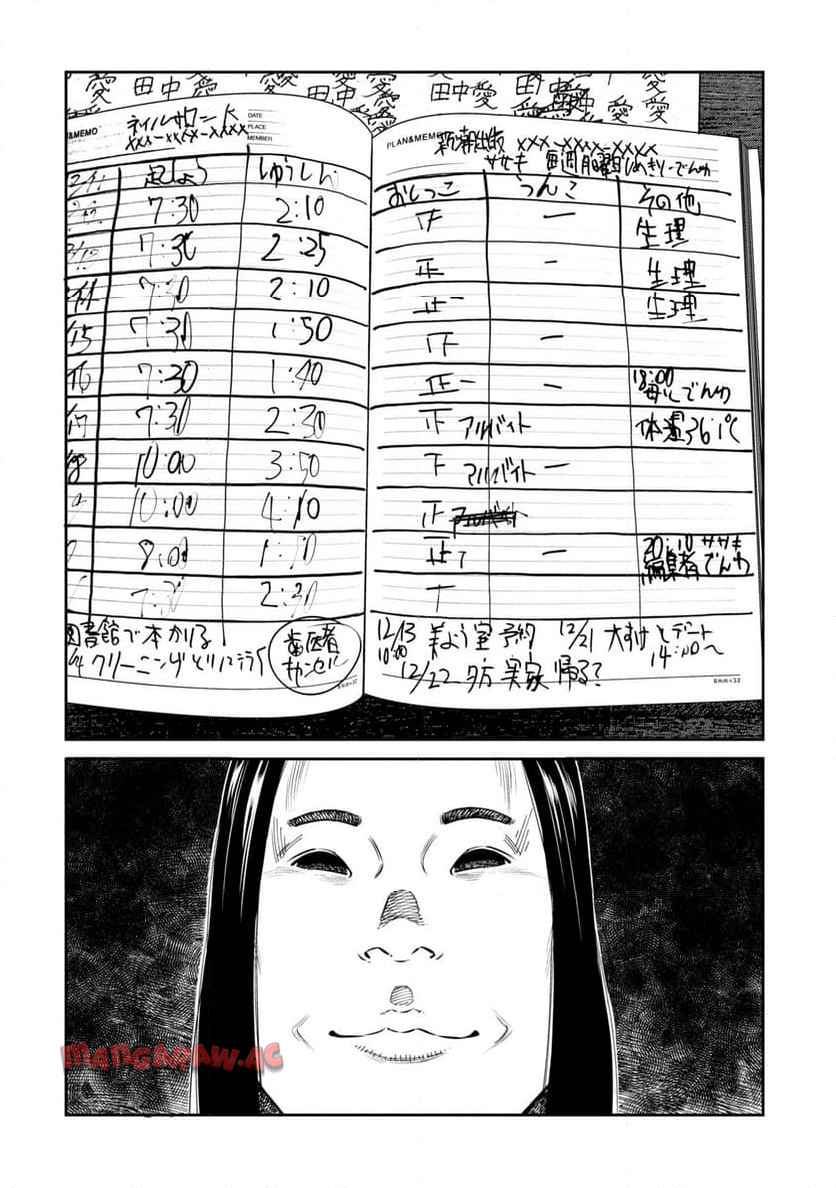 愛 田中愛 田中愛 田中愛 田中愛
ネイルサロン
xxx-xxxx-xxxx
&MEMO
DATE
PLACE
MEMBER
起しょう しゅうしん
7:30 2:10
7:30 2:25
7:30 2:10
15 7:30 1:50
16 7:30 1:40
17 7:30 2:30
10:00 3:50
10:00 4:10
8:00
7:30 2:30
図書館で本かりる
クリーニングとりに
歯医者
キャンセル
PLAN&MEMO
新潮出版 xxx-xxxx-xxxx
ササキ 毎週月曜日しめきり→でんわ
おしっこ うんこ その他
正 一 生理
正 一 生理
正一 生理
正 一
正一 一 18:00
でんわ
正 アルバイト 体温36.1℃
下 アルバイト 一
正 アルバイト
正 一 20:10 ササキ
編集者でんわ
丅
12/13 美よう室予約 12/21 大すけとデート
14:00〜
12/22 夕方 実家帰る?
MANGARAW.AC